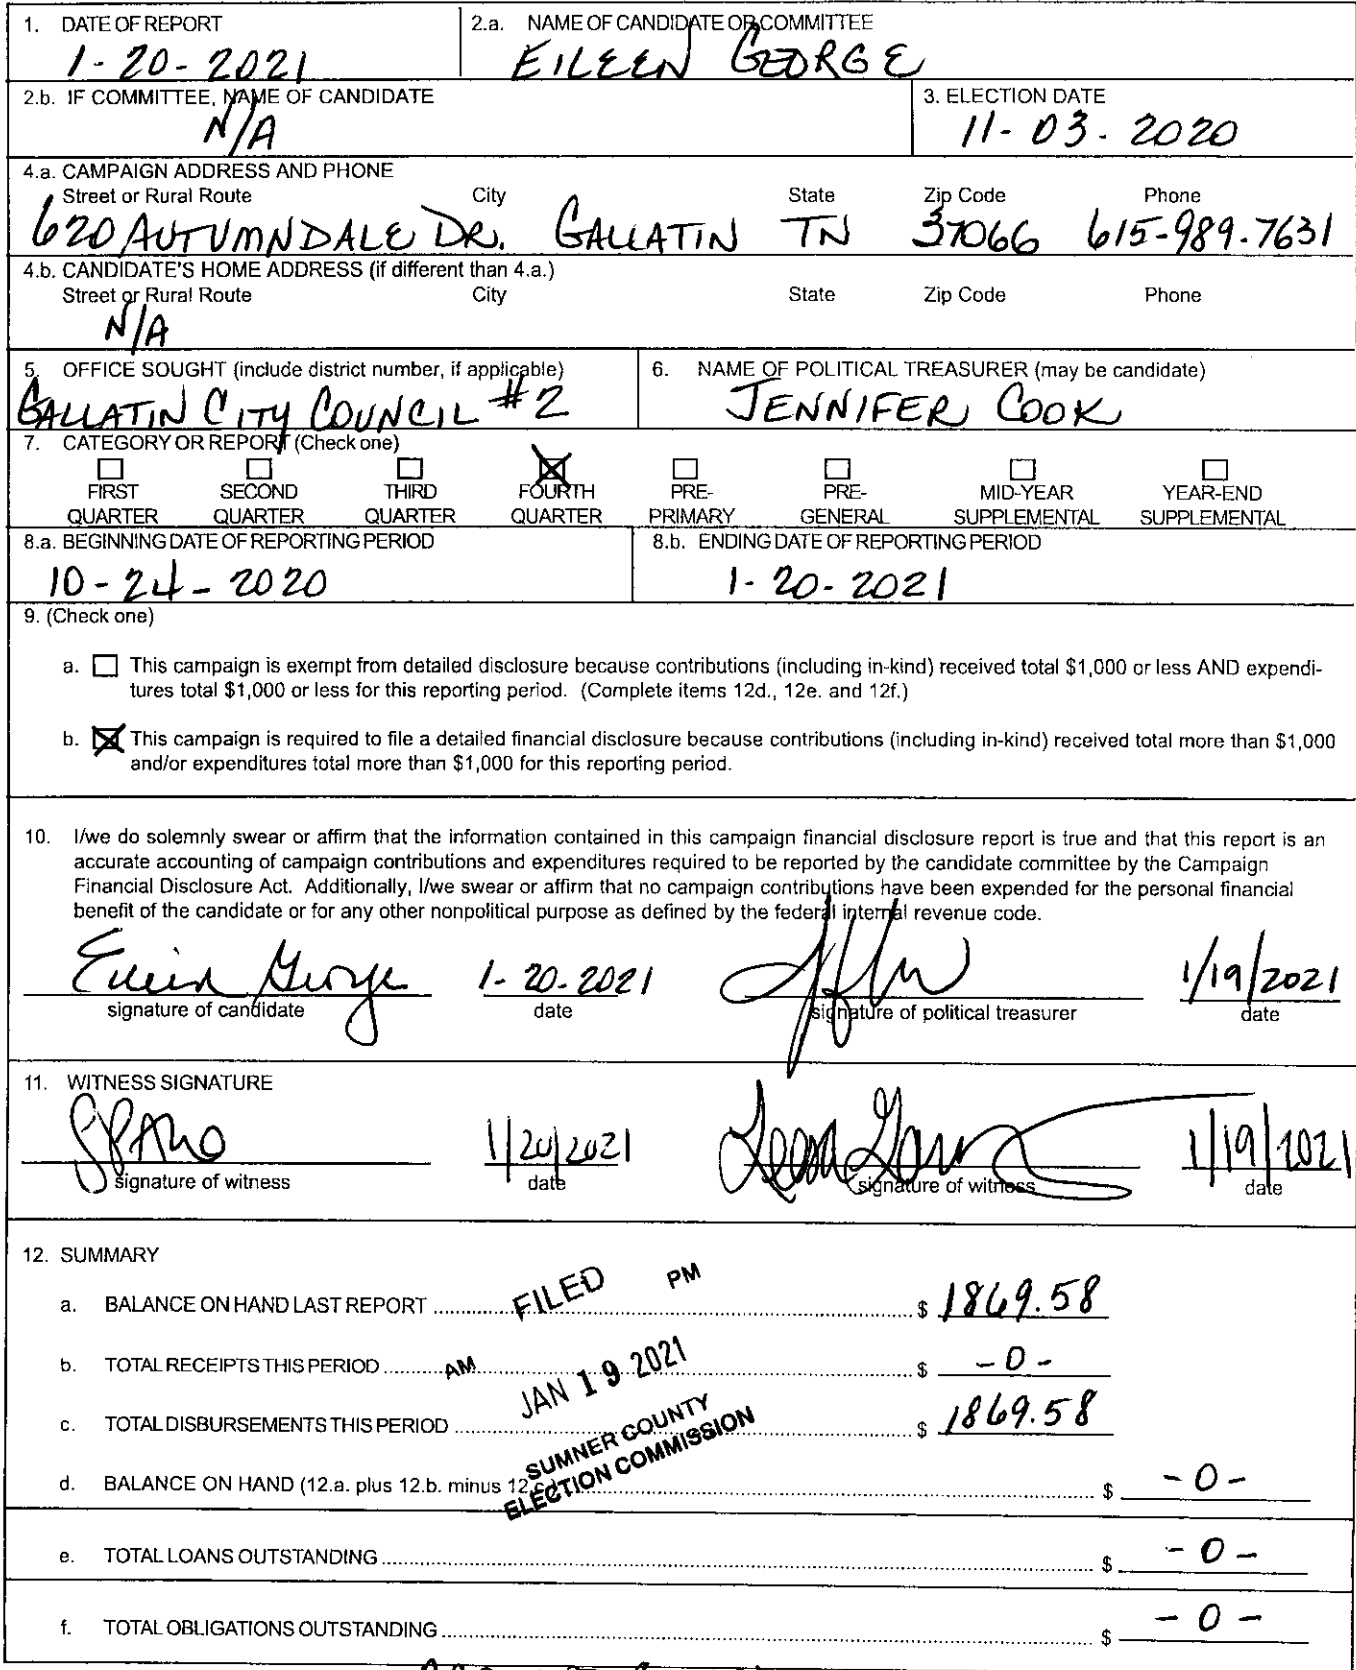 1. DATE OF REPORT
1-20-2021
2.a. NAME OF CANDIDATE OR COMMITTEE
EILEEN GEORGE
2.b. IF COMMITTEE, NAME OF CANDIDATE
N/A
3. ELECTION DATE
11-03-2020
4.a. CAMPAIGN ADDRESS AND PHONE
Street or Rural Route City State Zip Code Phone
620 AUTUMNDALE DR. GALLATIN TN 37066 615-989-7631
4.b. CANDIDATE'S HOME ADDRESS (if different than 4.a.)
Street or Rural Route City State Zip Code Phone
N/A
5. OFFICE SOUGHT (include district number, if applicable)
GALLATIN CITY COUNCIL #2
6. NAME OF POLITICAL TREASURER (may be candidate)
JENNIFER COOK
7. CATEGORY OR REPORT (Check one)
FIRST QUARTER
SECOND QUARTER
THIRD QUARTER
FOURTH QUARTER
PRE-PRIMARY
PRE-GENERAL
MID-YEAR SUPPLEMENTAL
YEAR-END SUPPLEMENTAL
8.a. BEGINNING DATE OF REPORTING PERIOD
10-24-2020
8.b. ENDING DATE OF REPORTING PERIOD
1-20-2021
9. (Check one)
a. This campaign is exempt from detailed disclosure because contributions (including in-kind) received total $1,000 or less AND expendi-
tures total $1,000 or less for this reporting period. (Complete items 12d., 12e. and 12f.)
b. This campaign is required to file a detailed financial disclosure because contributions (including in-kind) received total more than $1,000
and/or expenditures total more than $1,000 for this reporting period.
10. I/we do solemnly swear or affirm that the information contained in this campaign financial disclosure report is true and that this report is an
accurate accounting of campaign contributions and expenditures required to be reported by the candidate committee by the Campaign
Financial Disclosure Act. Additionally, I/we swear or affirm that no campaign contributions have been expended for the personal financial
benefit of the candidate or for any other nonpolitical purpose as defined by the federal internal revenue code.
Eileen George 1-20-2021 1/19/2021
signature of candidate date signature of political treasurer date
11. WITNESS SIGNATURE
1/20/2021 1/19/2021
signature of witness date signature of witness date
12. SUMMARY
a. BALANCE ON HAND LAST REPORT $ 1869.58
b. TOTAL RECEIPTS THIS PERIOD $ -0-
c. TOTAL DISBURSEMENTS THIS PERIOD $ 1869.58
d. BALANCE ON HAND (12.a. plus 12.b. minus 12.c.) $ -0-
e. TOTAL LOANS OUTSTANDING $ -0-
f. TOTAL OBLIGATIONS OUTSTANDING $ -0-
FILED PM
AM JAN 19 2021
SUMNER COUNTY
ELECTION COMMISSION